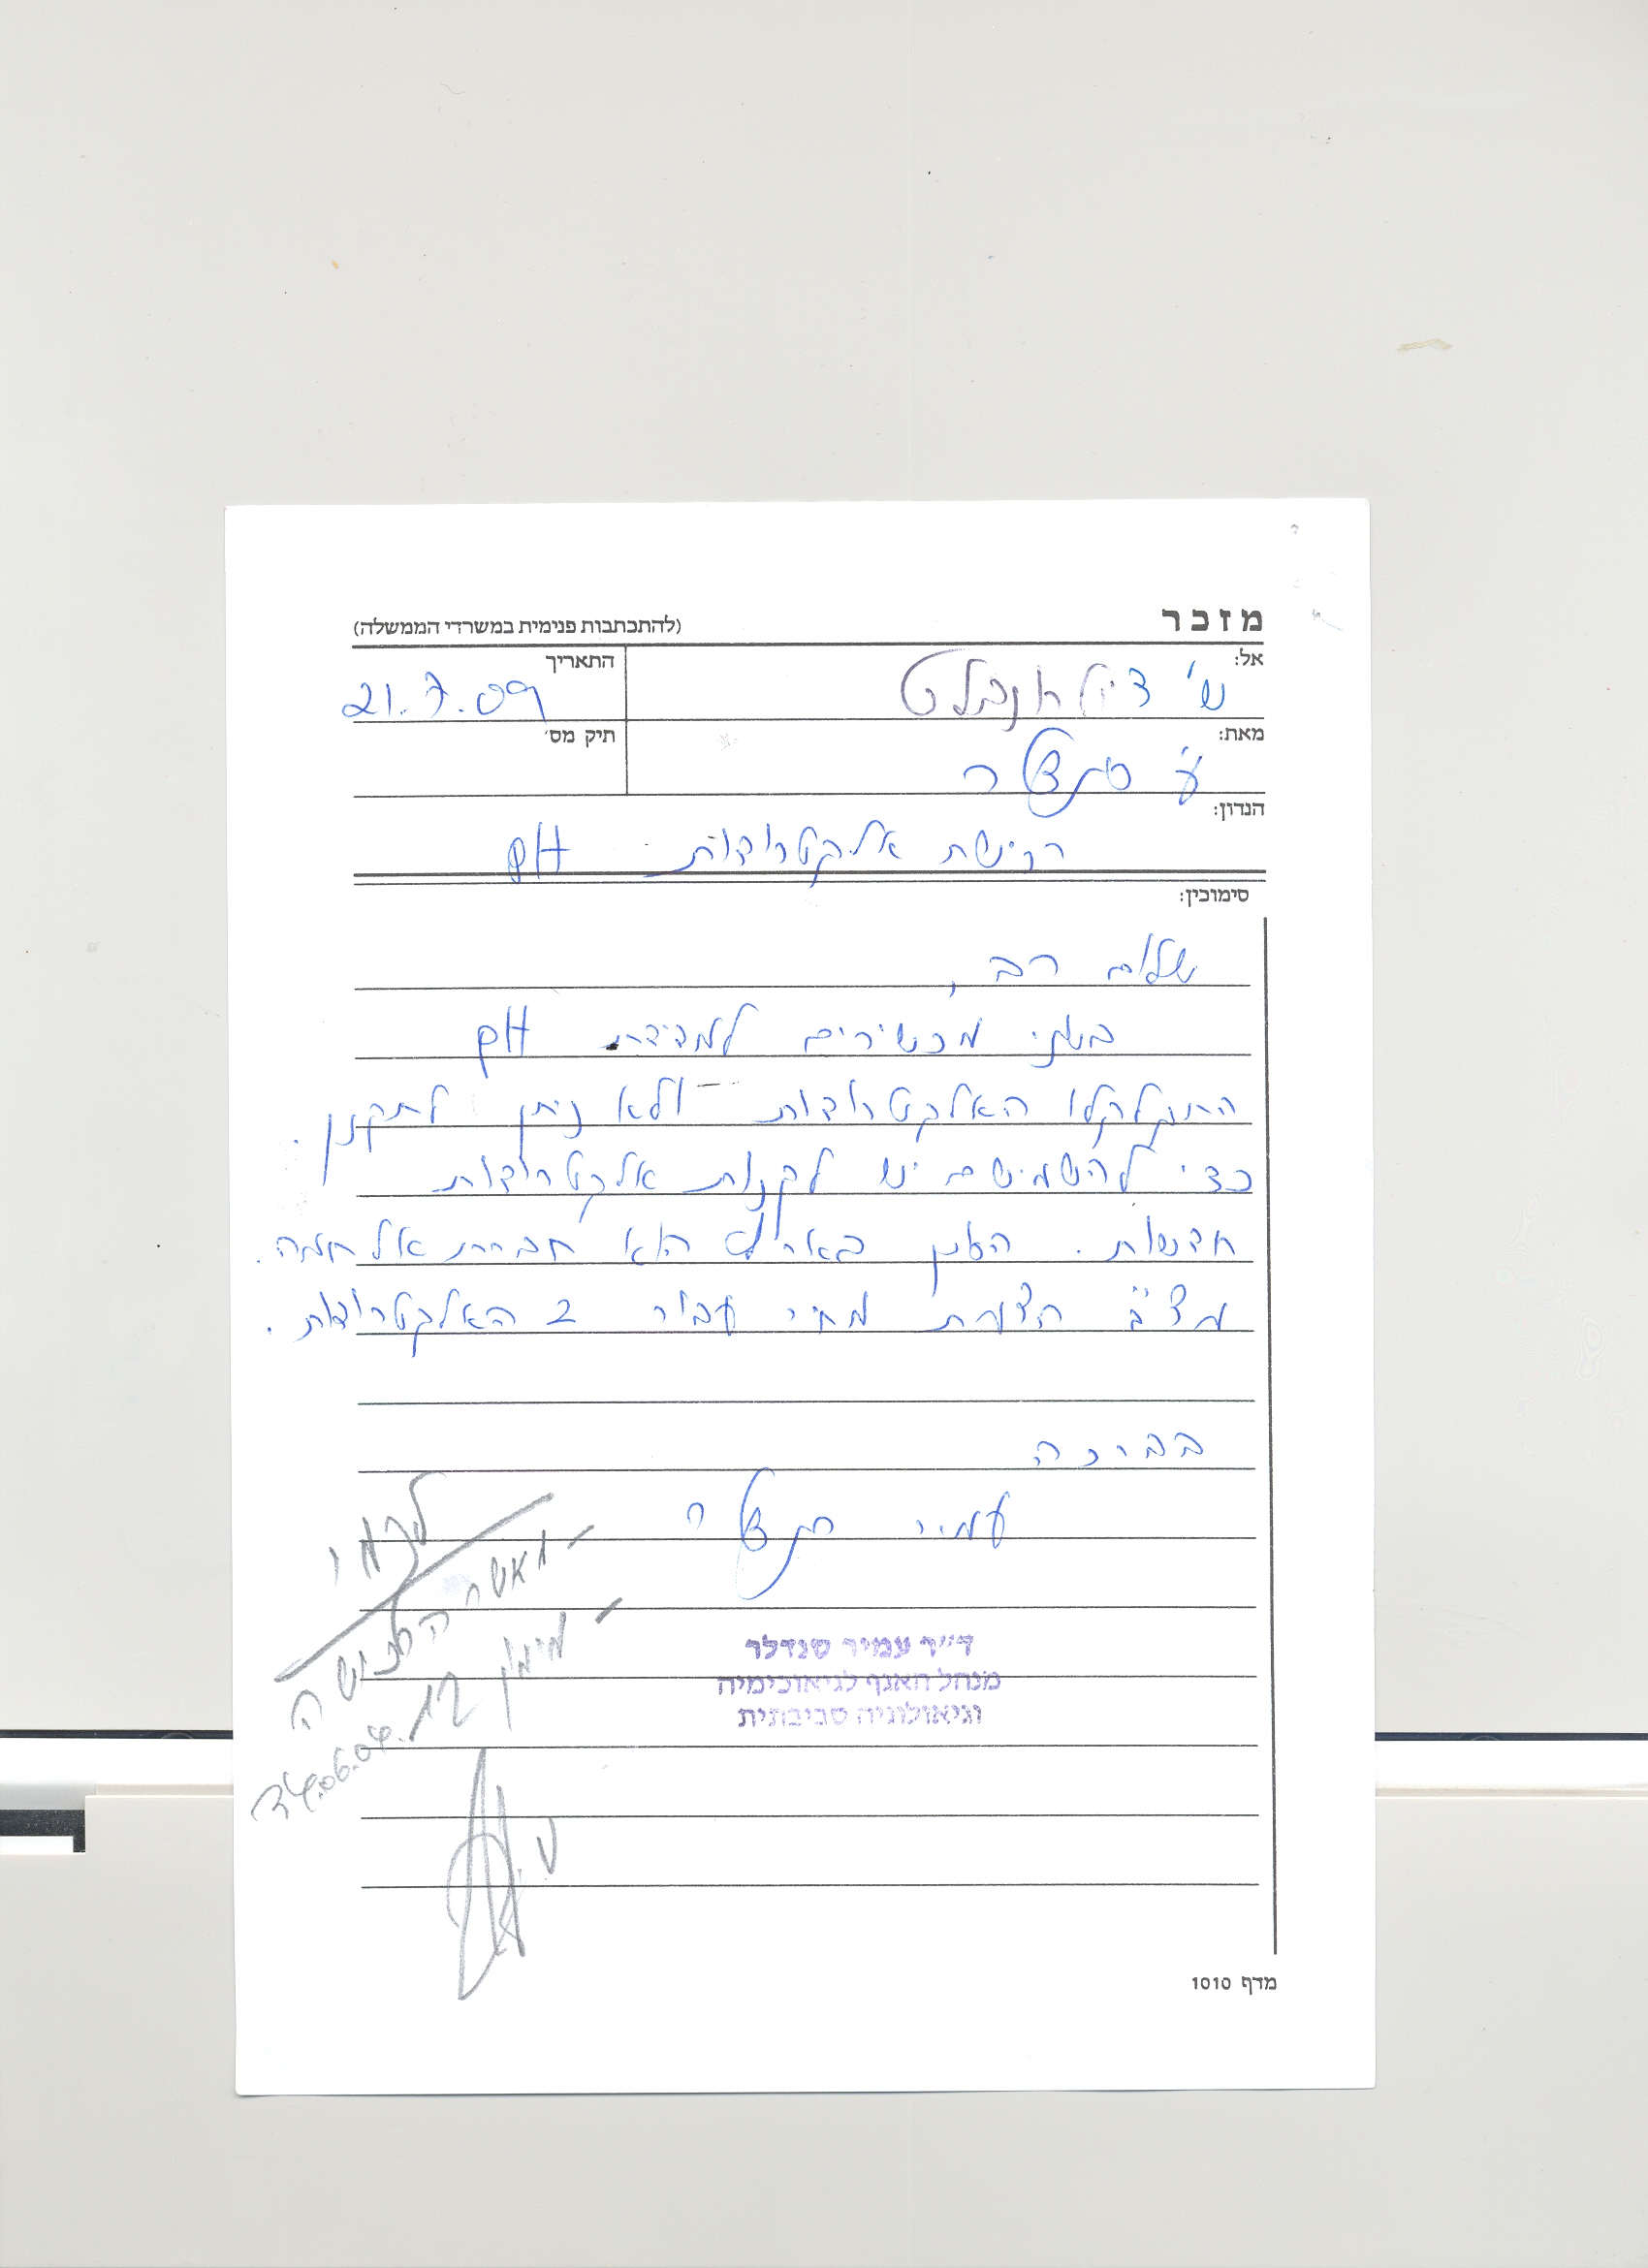 מזכר
(להתכתבות פנימית במשרדי הממשלה)
אל:
ש'
התאריך
21.7.09
מאת:
ע' סנדלר
תיק מס'
הנדון:
רכישת אלקטרודות pH
סימוכין:
שלום רב,
בשני מכשירים למדידת pH
התקלקלו האלקטרודות ולא ניתן לתקנן.
כדי להשמישם יש לקנות אלקטרודות
חדשות. הסוכן בארץ הוא חברת אל חמה.
מצ"ב הצעת מחיר עבור 2 האלקטרודות.
בברכה
עמיר סנדלר
ד"ר עמיר סנדלר
מנהל האגף לגיאוכימיה
וגיאולוגיה סביבתית
- מאשר הרכישה
- מימון
מדף 1010